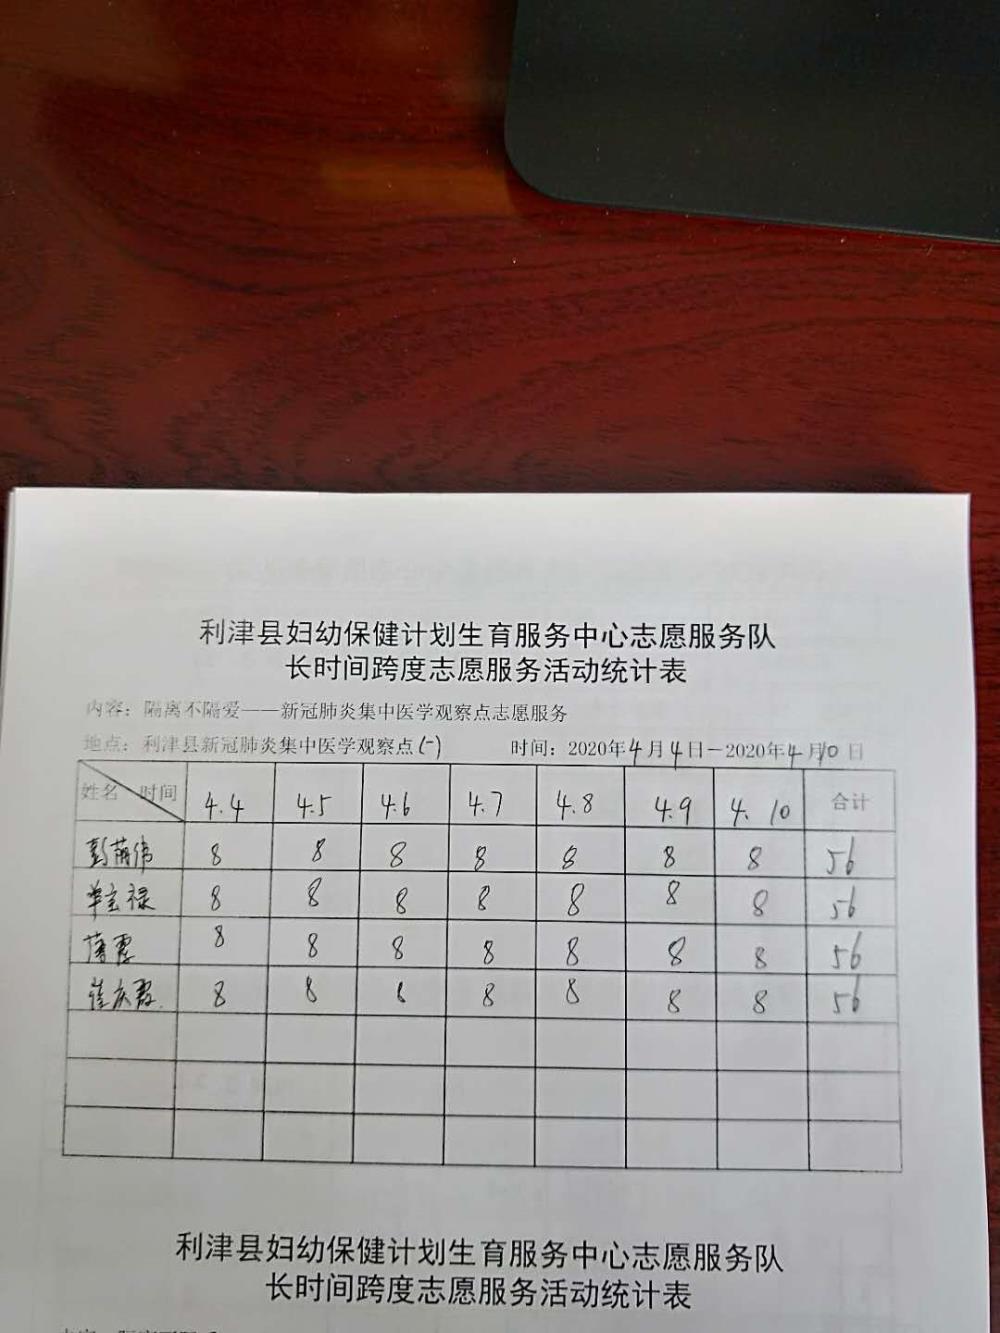 利津县妇幼保健计划生育服务中心志愿服务队
长时间跨度志愿服务活动统计表
内容：隔离不隔爱——新冠肺炎集中医学观察点志愿服务
地点：利津县新冠肺炎集中医学观察点(一) 时间：2020年4月4日－2020年4月10日
姓名 时间 4.4 4.5 4.6 4.7 4.8 4.9 4.10 合计
彭萌伟 8 8 8 8 8 8 8 56
8 8 8 8 8 8 8 56
薄霞 8 8 8 8 8 8 8 56
崔庆霞 8 8 8 8 8 8 8 56
利津县妇幼保健计划生育服务中心志愿服务队
长时间跨度志愿服务活动统计表